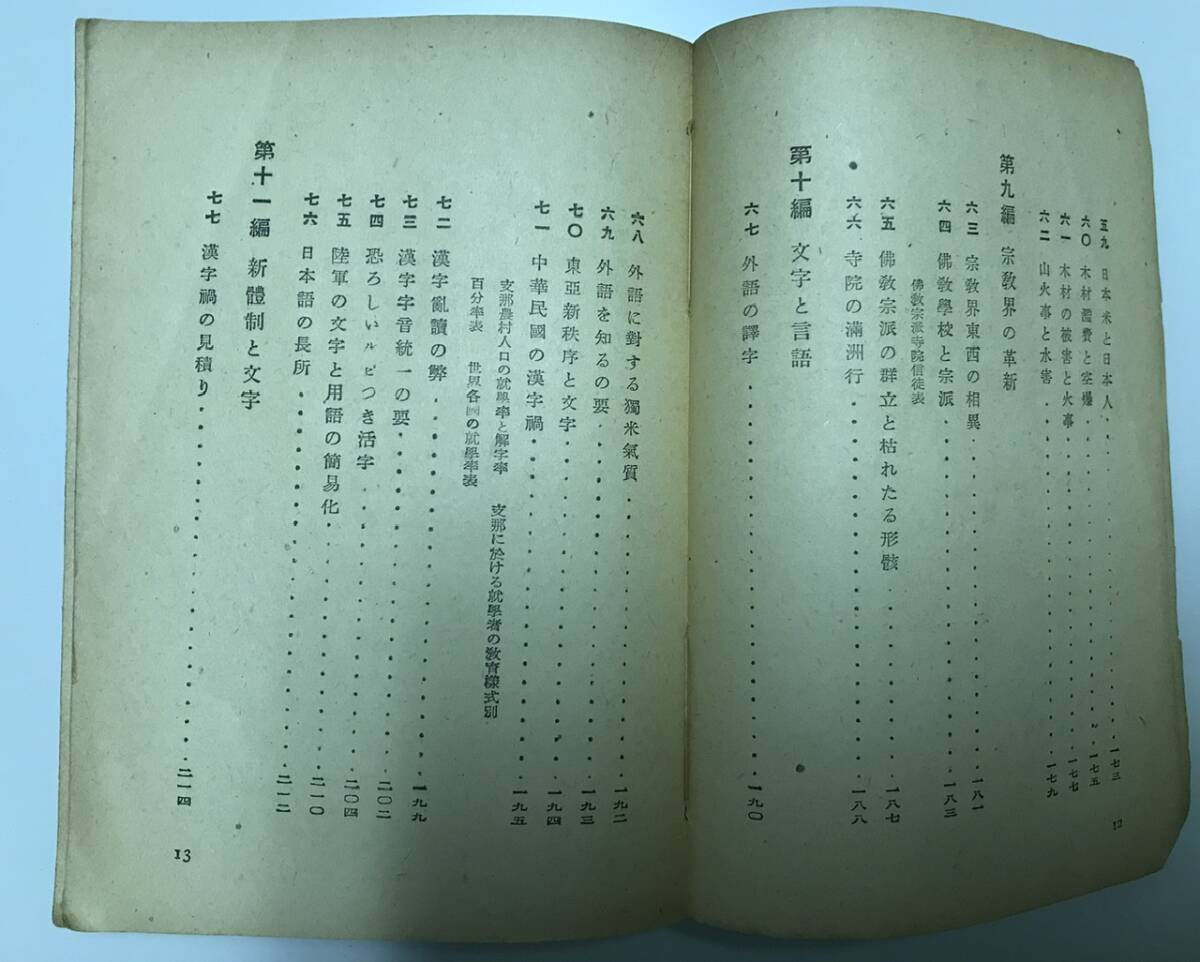 五九 日本米と日本人・・・一七三
六〇 木材濫費と空爆・・・一七五
六一 木材の被害と火事・・・一七七
六二 山火事と水害・・・一七九
第九編 宗教界の革新
六三 宗教界東西の相異・・・一八一
六四 佛教學校と宗派・・・一八三
佛教宗派寺院信徒表
六五 佛教宗派の群立と枯れたる形骸・・・一八七
六六 寺院の滿洲行・・・一八八
第十編 文字と言語
六七 外語の譯字・・・一九〇
12
六八 外語に對する獨米氣質・・・一九二
六九 外語を知るの要・・・一九三
七〇 東亞新秩序と文字・・・一九四
七一 中華民國の漢字禍・・・一九五
支那農村人口の就學率と解字率 支那に於ける就學者の敎育樣式別
百分率表 世界各國の就學率表
七二 漢字亂讀の弊・・・一九九
七三 漢字字音統一の要・・・二〇二
七四 恐ろしいルビつき活字・・・二〇四
七五 陸軍の文字と用語の簡易化・・・二一〇
七六 日本語の長所・・・二一二
第十一編 新體制と文字
七七 漢字禍の見積り・・・二一四
13